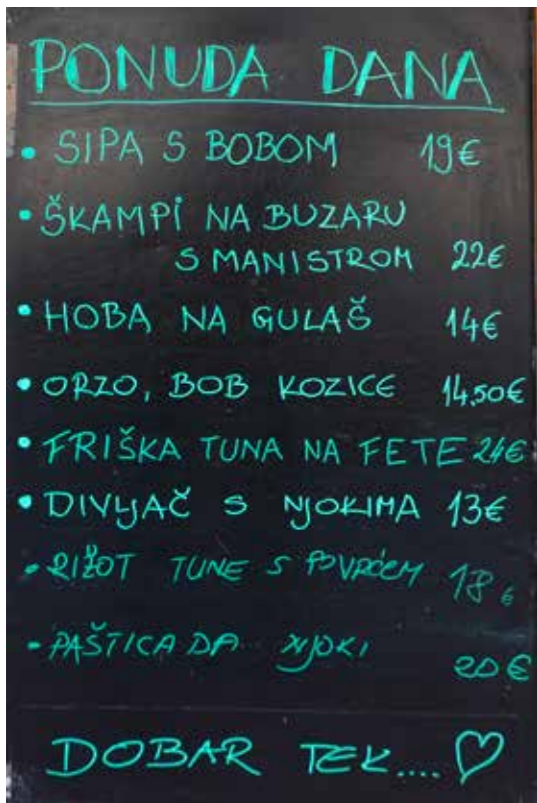 PONUDA DANA
• SIPA S BOBOM 19€
• ŠKAMPI NA BUZARU
S MANISTROM 22€
• HOBA NA GULAŠ 14€
• ORZO, BOB KOZICE 14,50€
• FRIŠKA TUNA NA FETE 24€
• DIVLJAČ S NJOKIMA 13€
- RIŽOT TUNE S POVRĆEM 18€
- PAŠTICADA NJOKI 20€
DOBAR TEK.... ♡